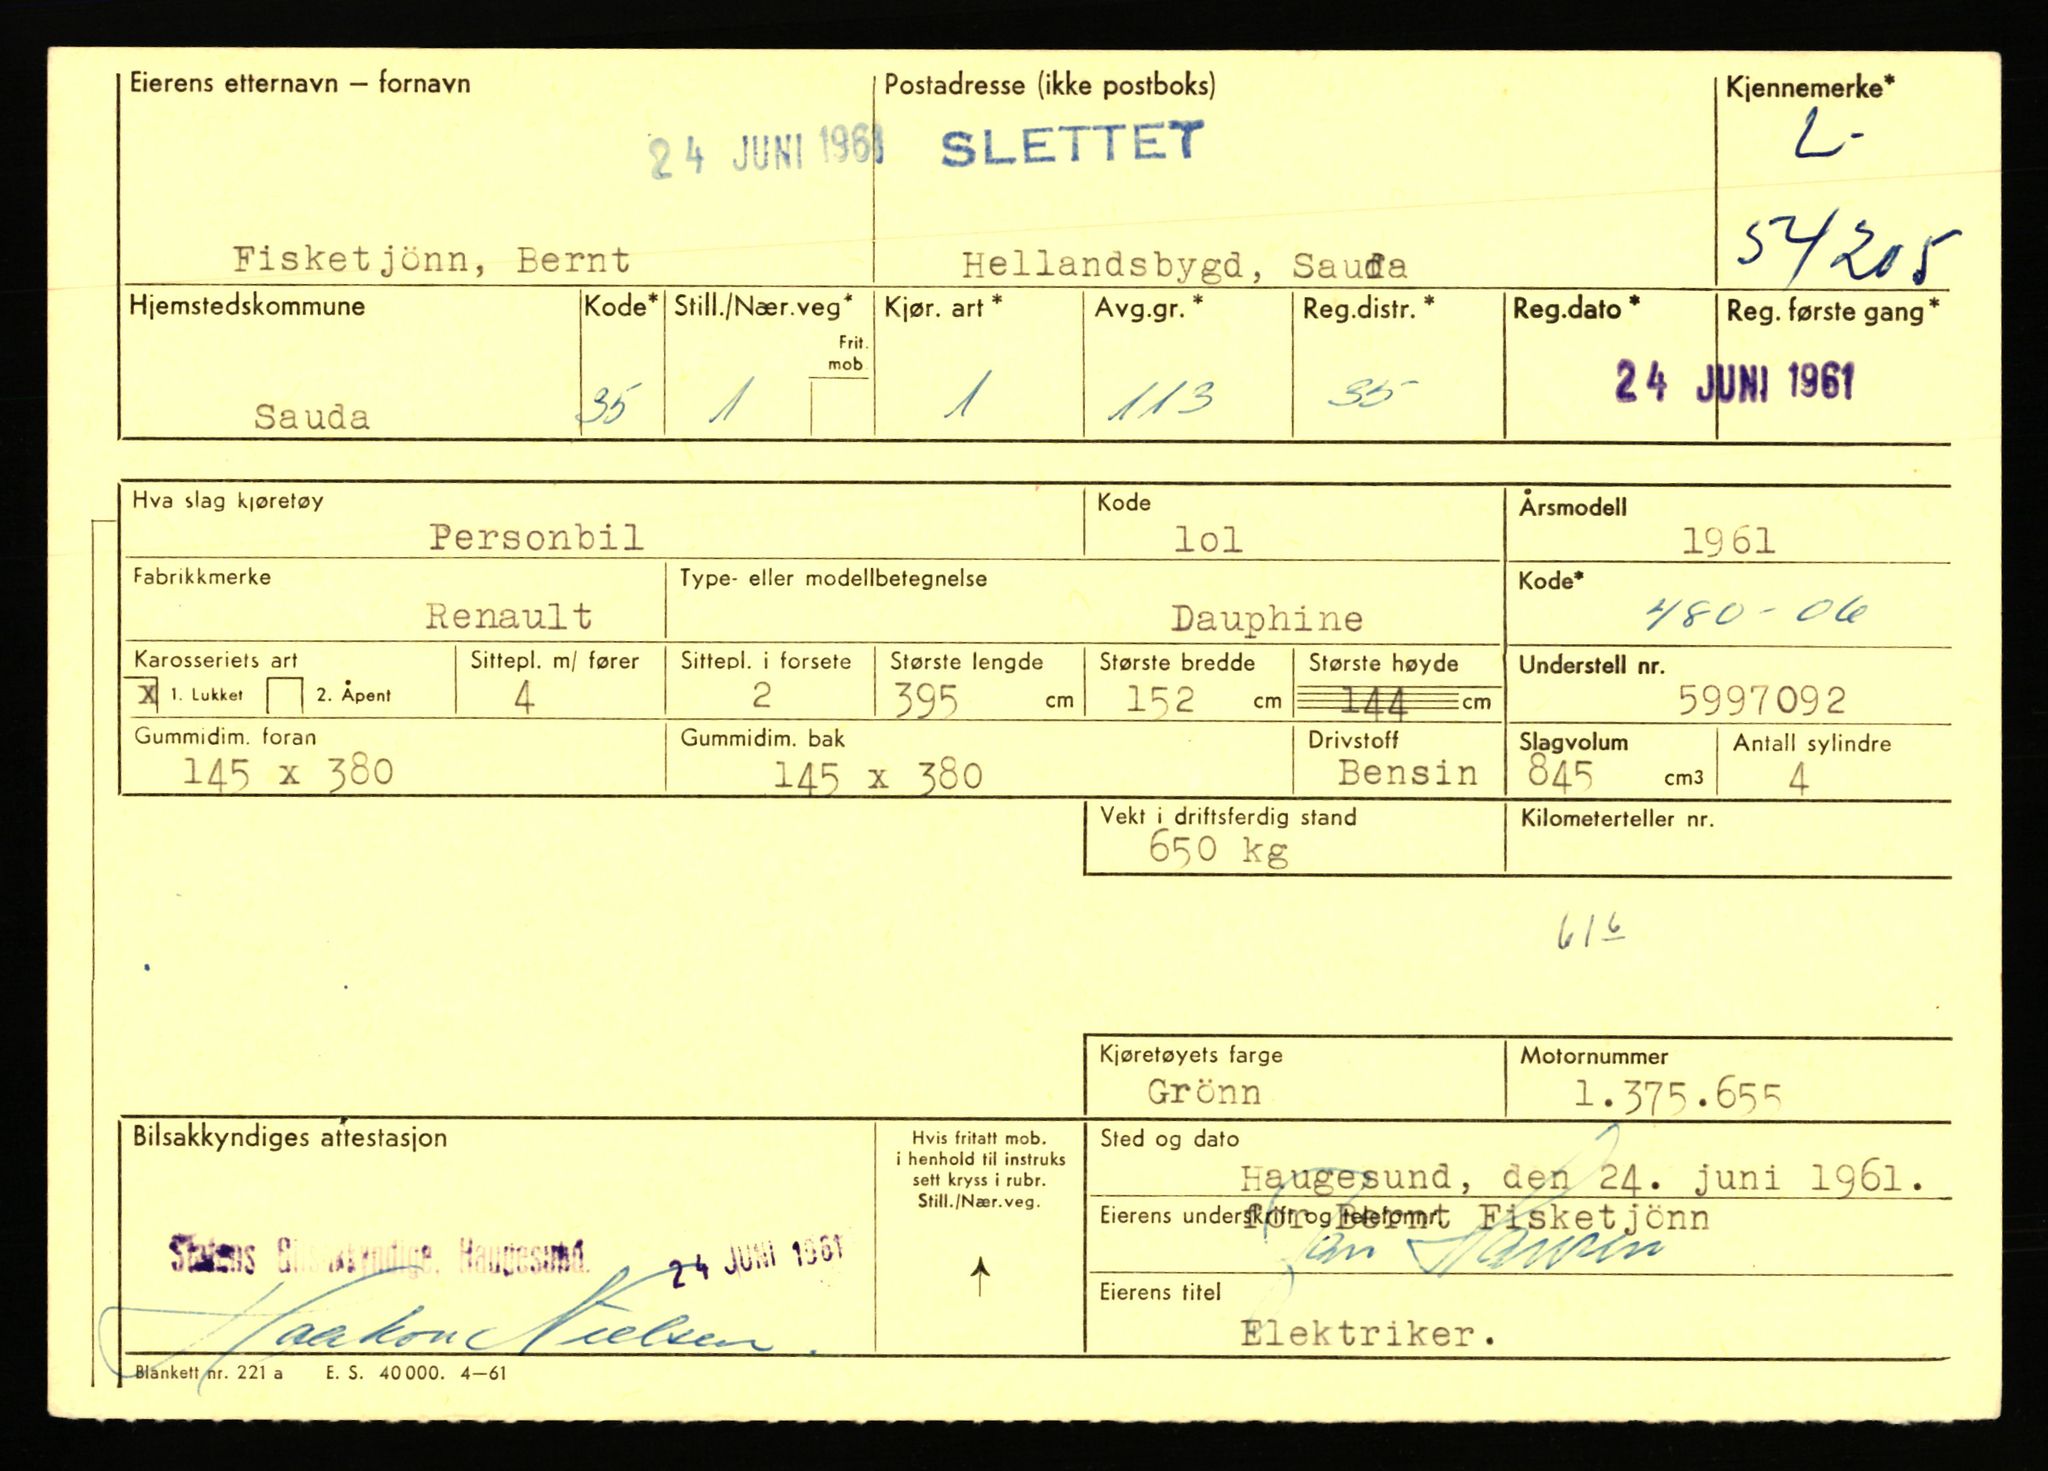 Eierens etternavn — fornavn
Postadresse (ikke postboks)
Kjennemerke*
24 JUNI 1961
SLETTET
L-
54205
Fisketjönn, Bernt
Hellandsbygd, Sauda
Hjemstedskommune
Kode*
Still./Nær.veg*
Kjør. art *
Avg.gr. *
Reg.distr. *
Reg.dato *
Reg. første gang *
Frit.
mob.
Sauda
35
1
1
113
35
24 JUNI 1961
Hva slag kjøretøy
Kode
Årsmodell
Personbil
lol
1961
Fabrikkmerke
Type- eller modellbetegnelse
Kode*
Renault
Dauphine
480-06
Karosseriets art
Sittepl. m/ fører
Sittepl. i forsete
Største lengde
Største bredde
Største høyde
Understell nr.
x 1. Lukket
2. Åpent
4
2
395 cm
152 cm
144 cm
5997092
Gummidim. foran
Gummidim. bak
Drivstoff
Slagvolum
Antall sylindre
145 x 380
145 x 380
Bensin
845 cm3
4
Vekt i driftsferdig stand
Kilometerteller nr.
650 kg
61 6
Kjøretøyets farge
Motornummer
Grönn
1.375.655
Bilsakkyndiges attestasjon
Hvis fritatt mob.
i henhold til instruks
sett kryss i rubr.
Still./Nær.veg.
Sted og dato
Haugesund, den 24. juni 1961.
Eierens underskrift og telefonnr.
for Bernt Fisketjönn
Statens Bilsakkyndige, Haugesund.
24 JUNI 1961
Haakon Nielsen.
Eierens titel
Elektriker.
Blankett nr. 221 a E. S. 40 000. 4—61